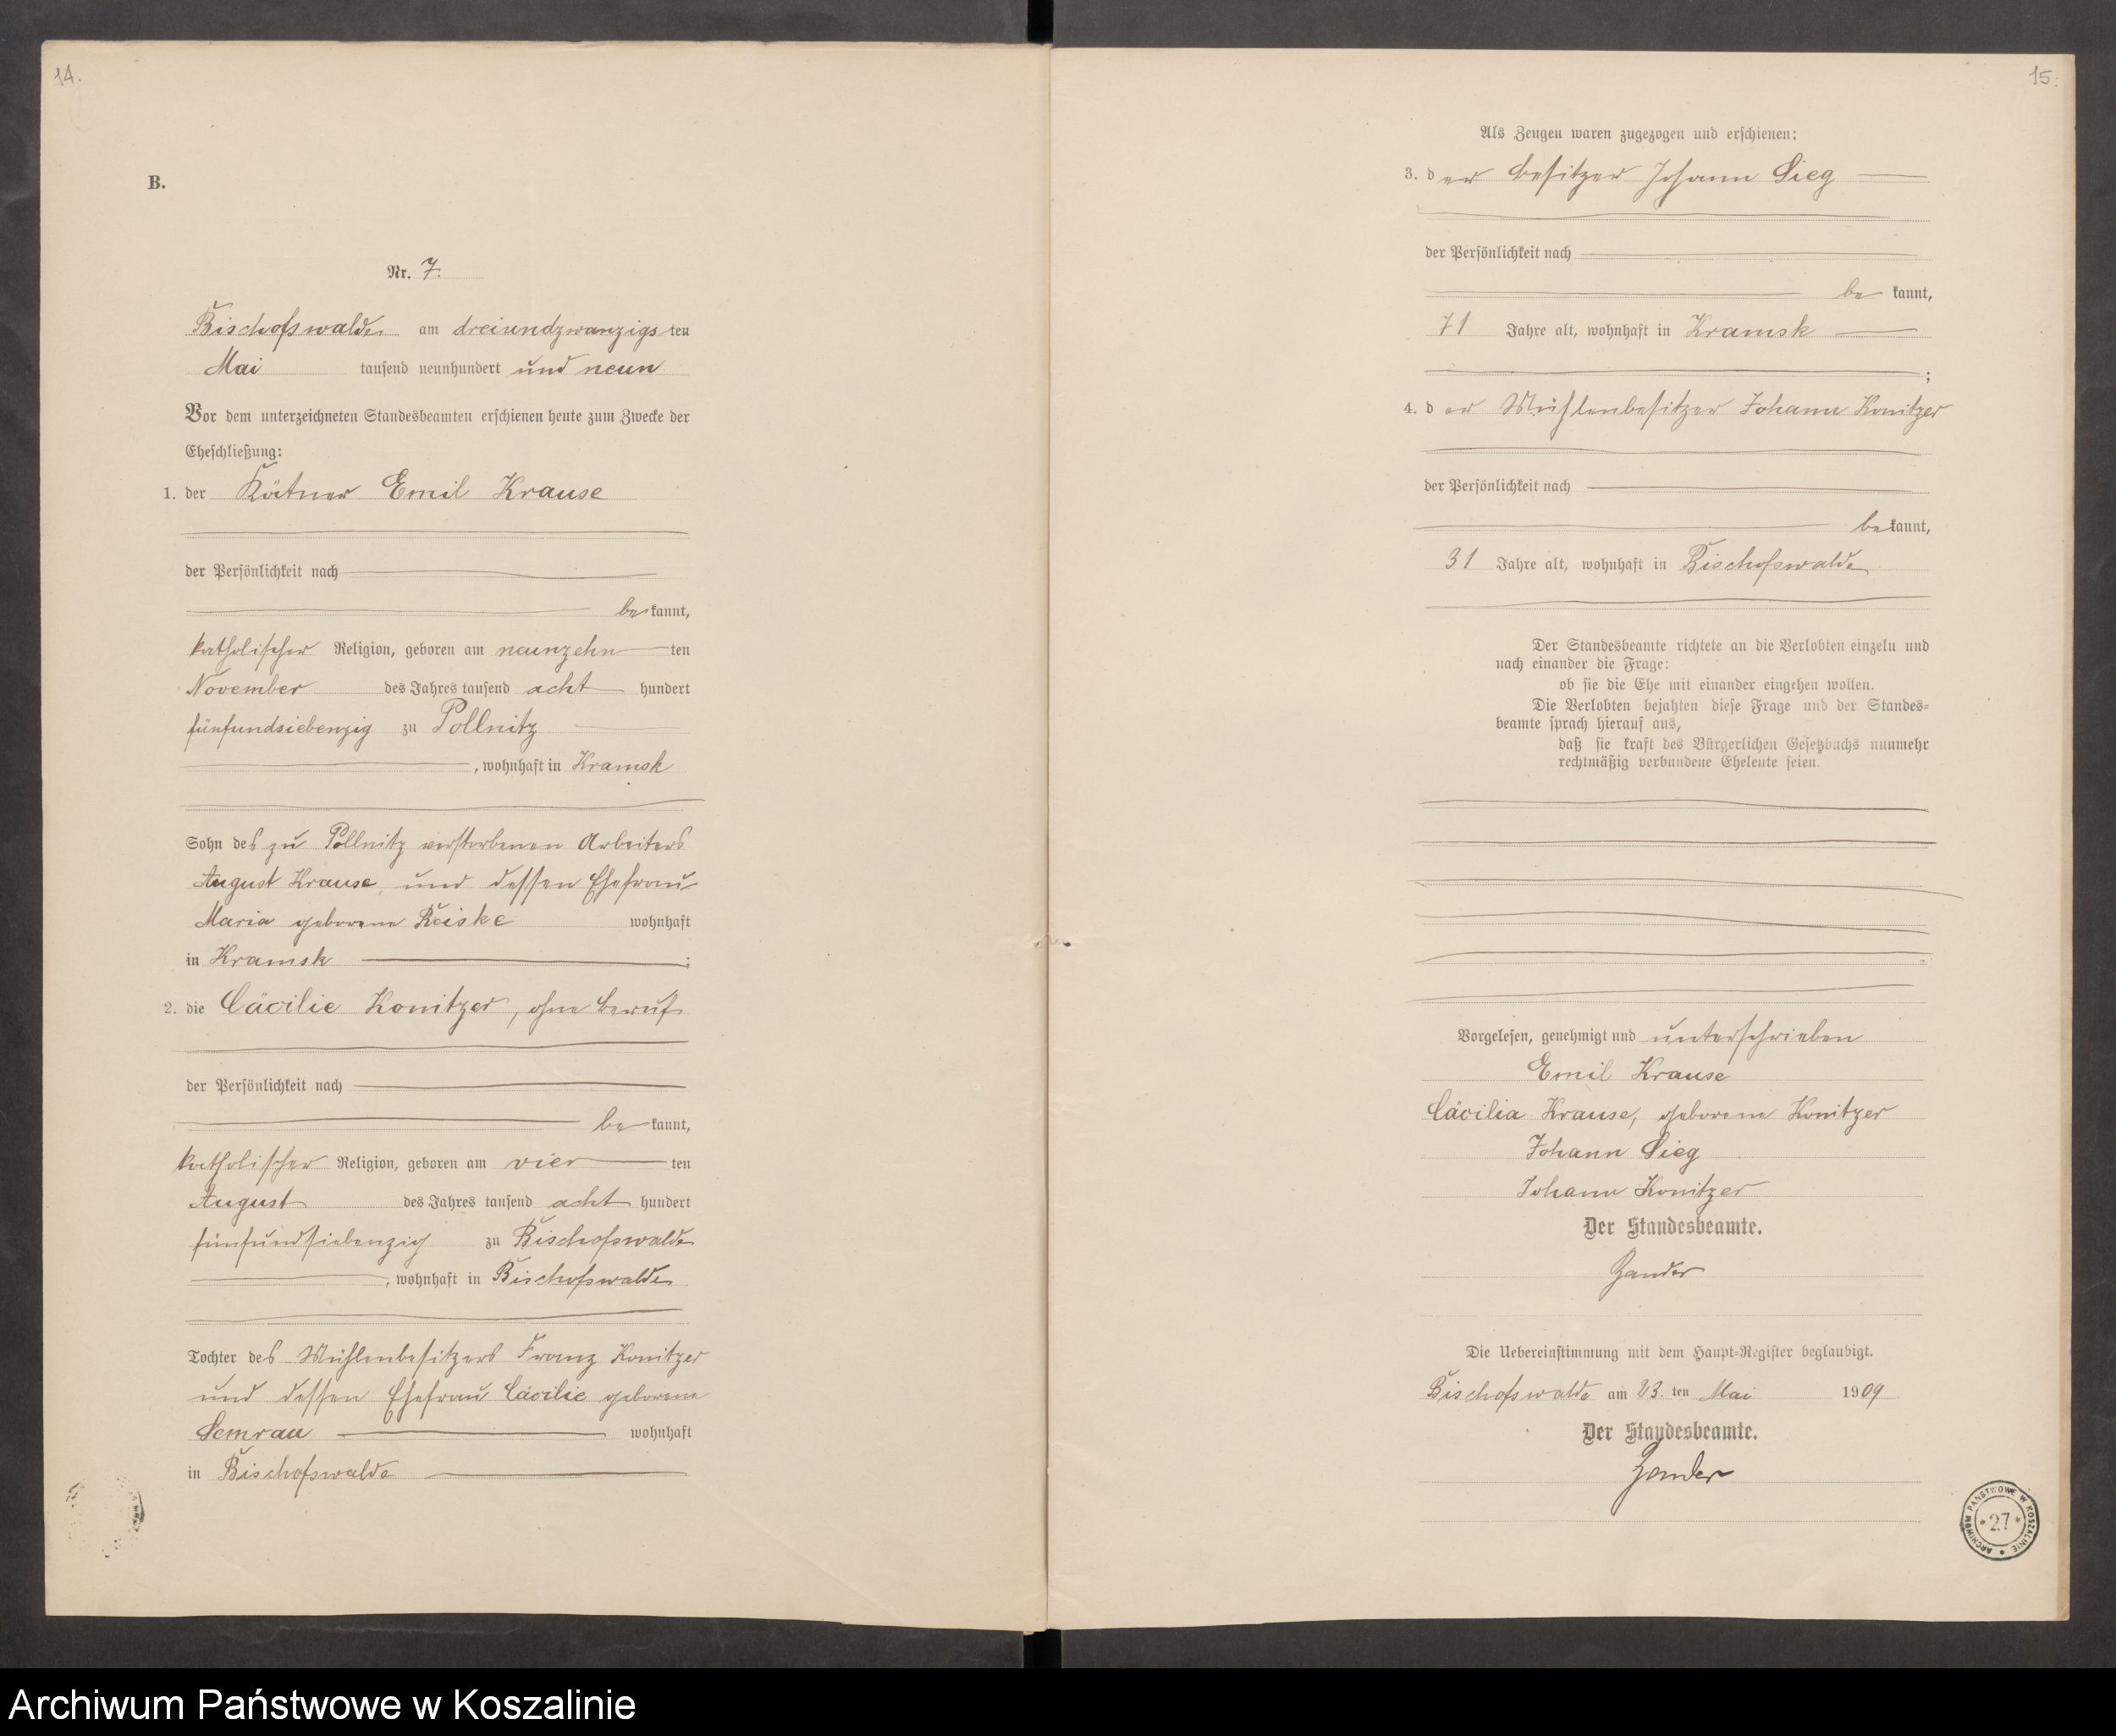 14.
B.
Nr. 7.
Bischofswalde am dreiundzwanzigsten
Mai tausend neunhundert und neun
Vor dem unterzeichneten Standesbeamten erschienen heute zum Zwecke der
Eheschließung:
1. der Kätner Emil Krause
der Persönlichkeit nach
bekannt,
katholischer Religion, geboren am neunzehnten
November des Jahres tausend acht hundert
fünfundsiebenzig zu Pollnitz
, wohnhaft in Kramsk
Sohn des zu Pollnitz verstorbenen Arbeiters
August Krause, und dessen Ehefrau
Maria geborene Reiske wohnhaft
in Kramsk ;
2. die Cäcilie Konitzer, ohne Beruf
der Persönlichkeit nach
bekannt,
katholischer Religion, geboren am vierten
August des Jahres tausend acht hundert
fünfundsiebenzig zu Bischofswalde
, wohnhaft in Bischofswalde
Tochter des Mühlenbesitzers Franz Konitzer
und dessen Ehefrau Cäcilie geborene
Semrau wohnhaft
in Bischofswalde
15.
Als Zeugen waren zugezogen und erschienen:
3. der Besitzer Johann Sieg
der Persönlichkeit nach
bekannt,
71 Jahre alt, wohnhaft in Kramsk
;
4. der Mühlenbesitzer Johann Konitzer
der Persönlichkeit nach
bekannt,
31 Jahre alt, wohnhaft in Bischofswalde
Der Standesbeamte richtete an die Verlobten einzeln und
nach einander die Frage:
ob sie die Ehe mit einander eingehen wollen.
Die Verlobten bejahten diese Frage und der Standes-
beamte sprach hierauf aus,
daß sie kraft des Bürgerlichen Gesetzbuchs nunmehr
rechtmäßig verbundene Eheleute seien.
Vorgelesen, genehmigt und unterschrieben
Emil Krause
Cäcilia Krause, geborene Konitzer
Johann Sieg
Johann Konitzer
Der Standesbeamte.
Zander
Die Uebereinstimmung mit dem Haupt-Register beglaubigt.
Bischofswalde am 23. ten Mai 1909
Der Standesbeamte.
Zander
ARCHIWUM PAŃSTWOWE W KOSZALINIE
* 27 *
Archiwum Państwowe w Koszalinie